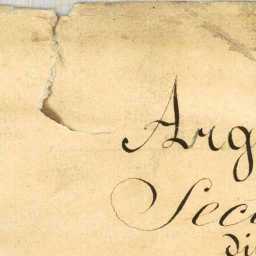 Arg
Sec
di